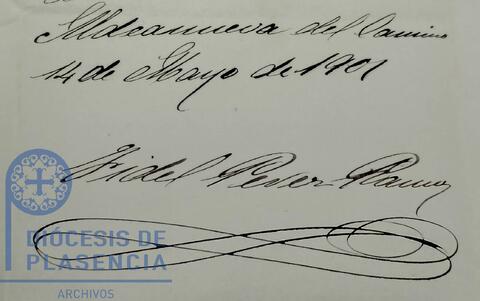 Aldeanueva del Camino
14 de Mayo de 1901
Fidel Perez Ramos
DIÓCESIS DE
PLASENCIA
ARCHIVOS